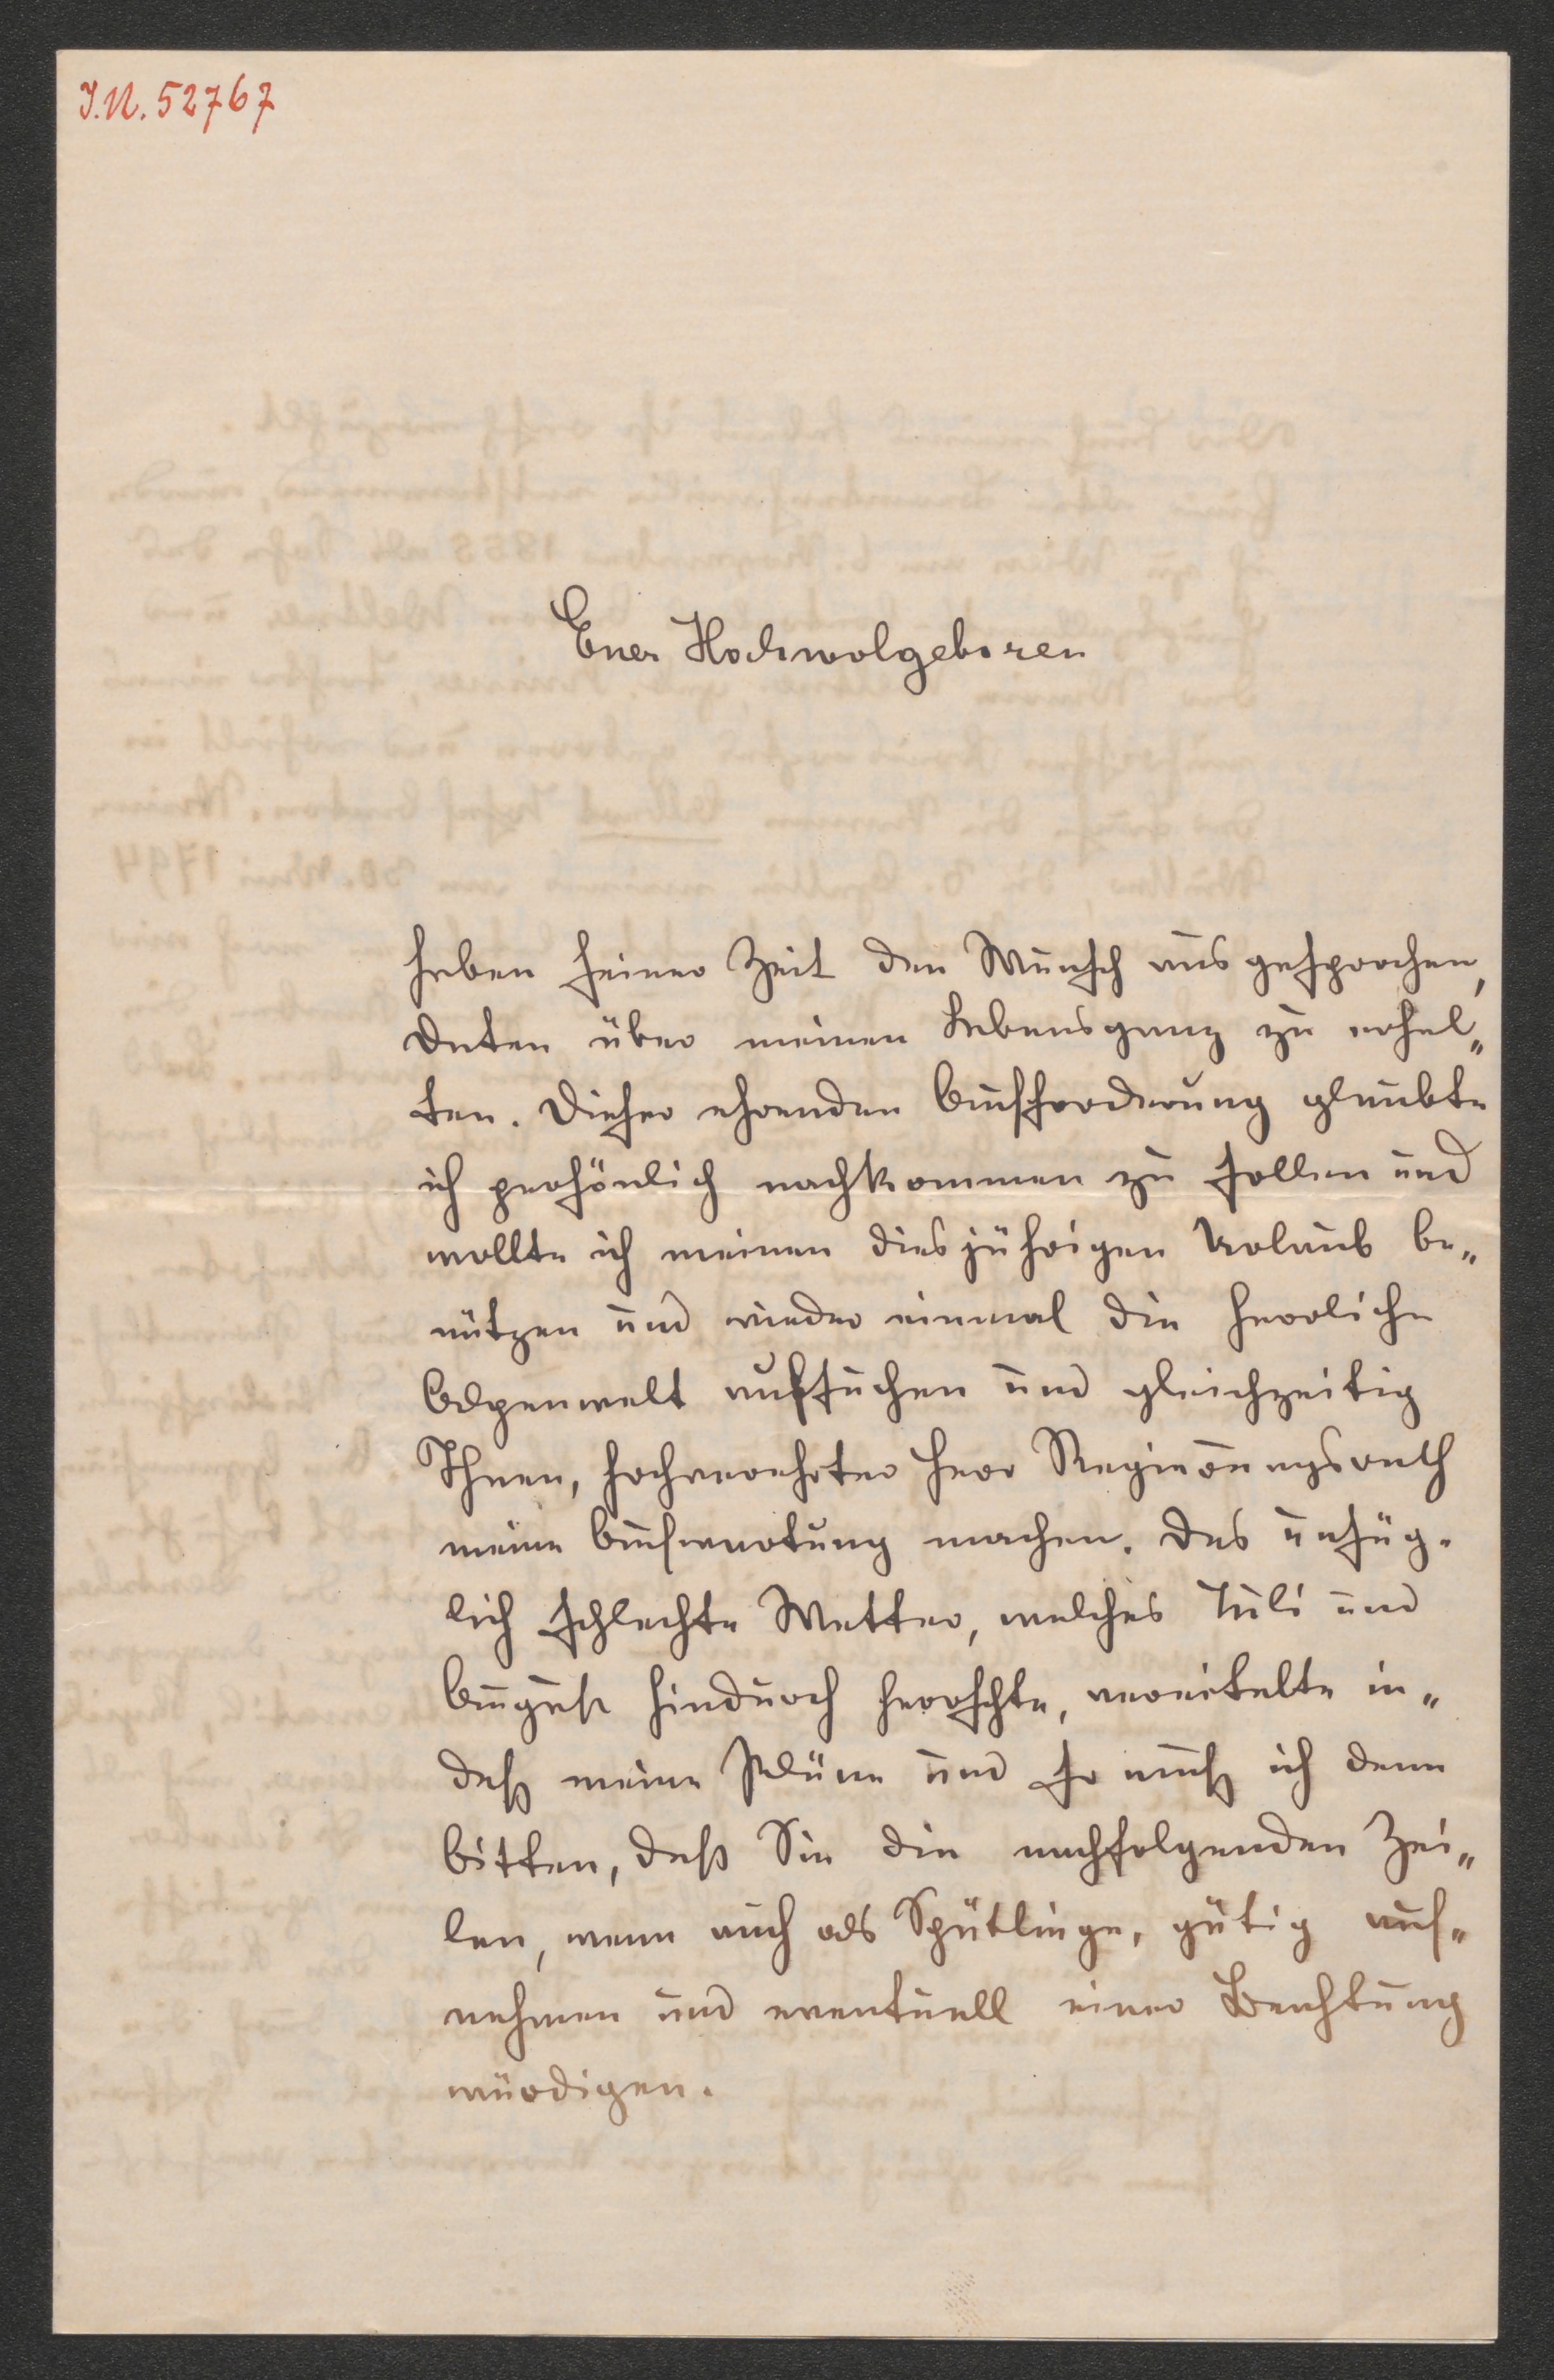 I.N. 52767
Euer Hochwolgeboren
haben seiner Zeit den Wunsch ausgesprochen,
Daten über meinen Lebensgang zu erhal„
ten. Dieser ehrenden Aufforderung glaubte
ich persönlich nachkommen zu sollen und
wollte ich meinen diesjährigen Urlaub be„
nützen und wieder einmal die herrliche
Alpenwelt aufsuchen und gleichzeitig
Ihnen, hochverehrter Herr Regierungsrath
meine Aufwartung machen. Das unsäg-
lich schlechte Wetter, welches Juli und
August hindurch herrschte, vereitelte in„
deß meine Pläne und so muß ich denn
bitten, daß Sie die nachfolgenden Zei„
len, wenn auch als Spätlinge, gütig auf„
nehmen und eventuell einer Beachtung
würdigen.